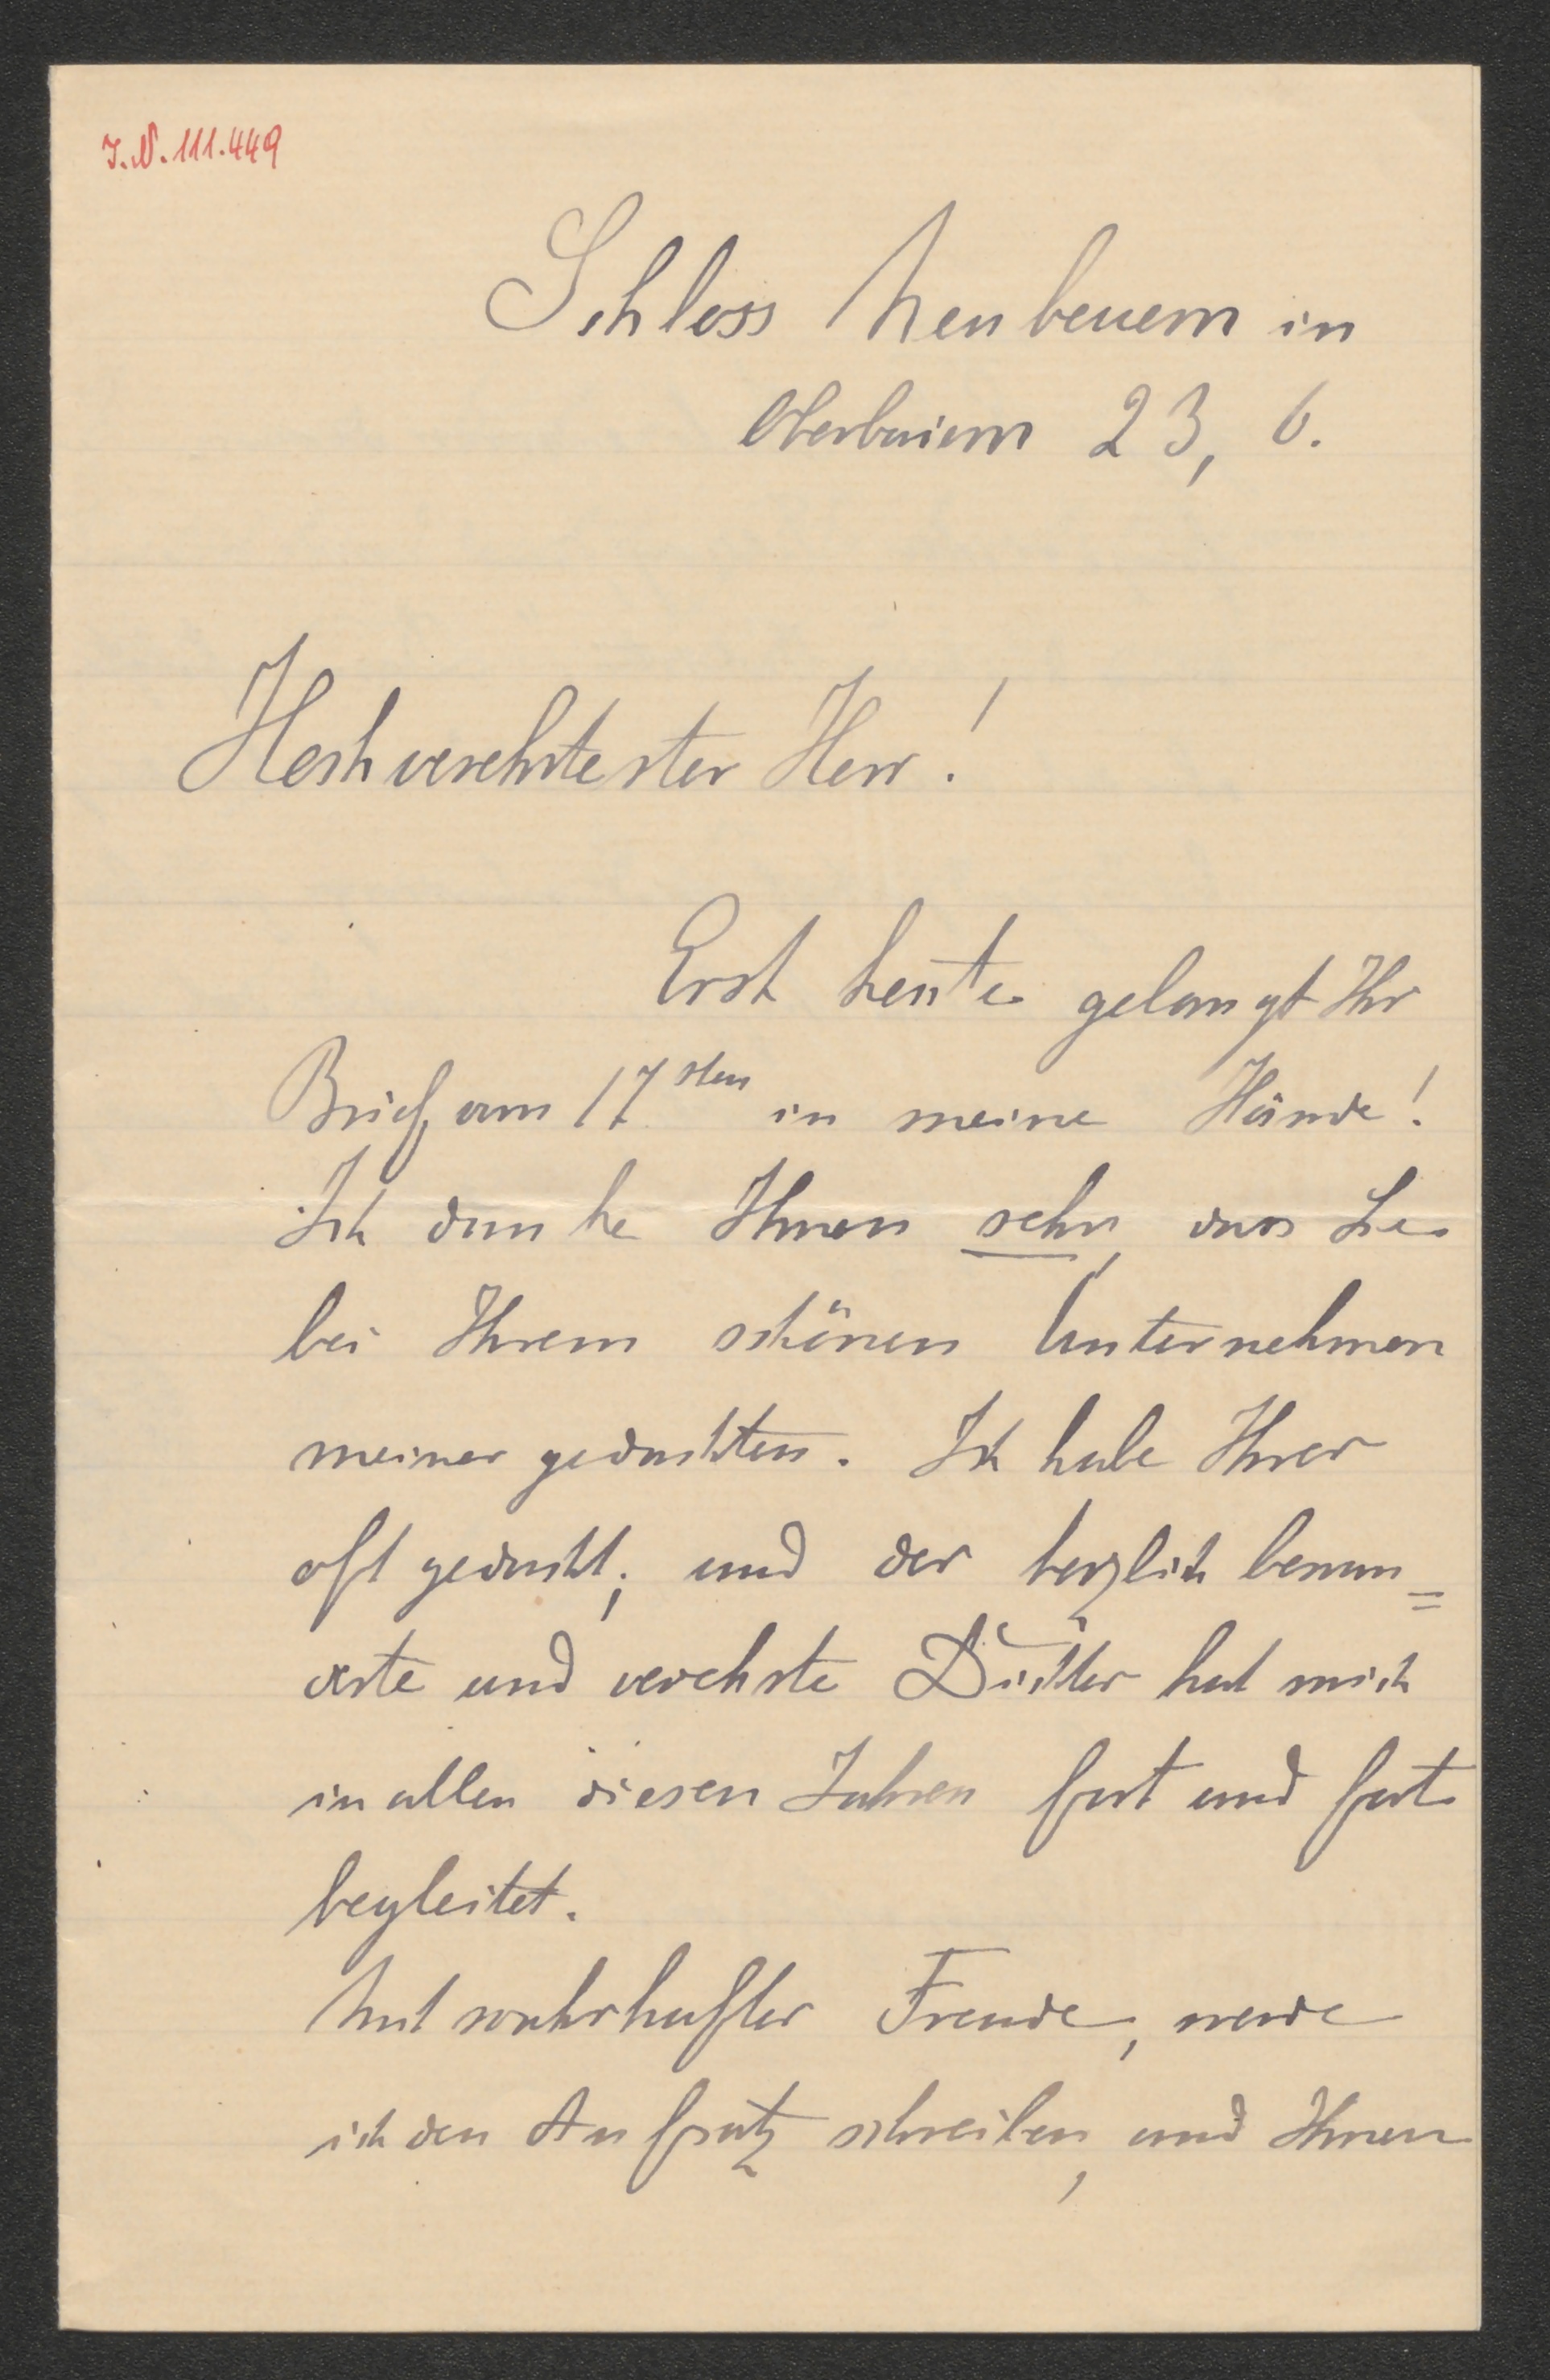 J.N. 111.449
Schloss Neubeuern in
Oberbaiern 23, 6.
Hochverehrtester Herr!
Erst heute gelangt Ihr
Brief vom 17sten in meine Hände!
Ich danke Ihnen sehr, dass Sie
bei Ihrem schönen Unternehmen
meiner gedachten. Ich habe Ihrer
oft gedacht; und der herzlich bewun=
derte und verehrte Dichter hat mich
in allen diesen Jahren fort und fort
begleitet.
Mit wahrhafter Freude, werde
ich den Aufsatz schreiben, und Ihnen